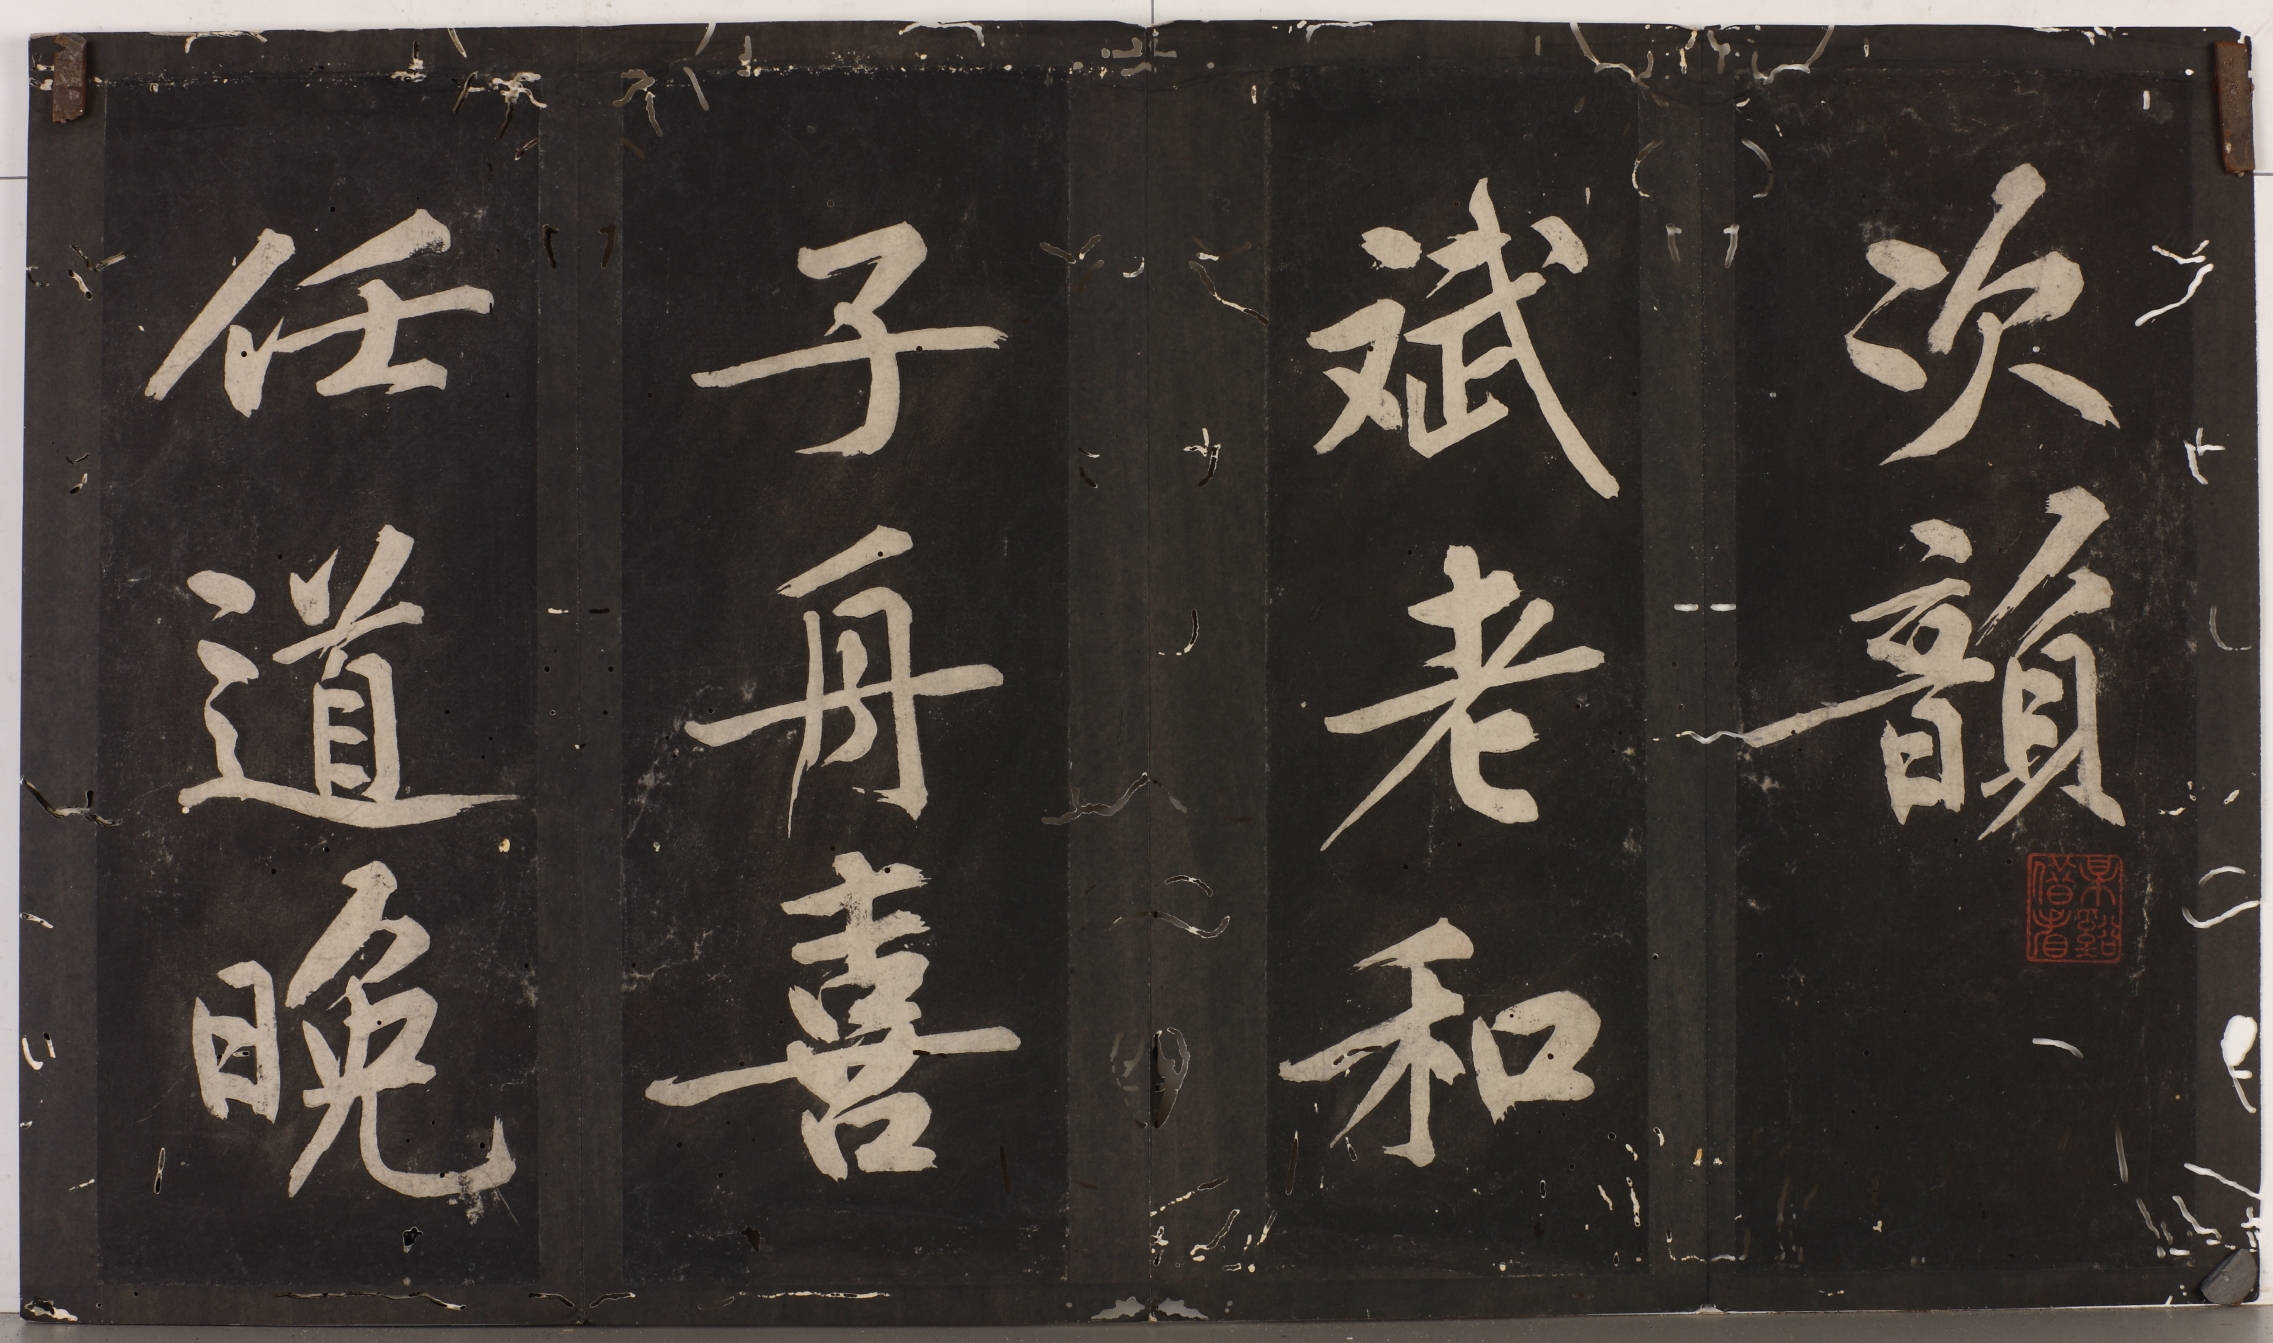 次韻
斌老和
子舟喜
任道晚